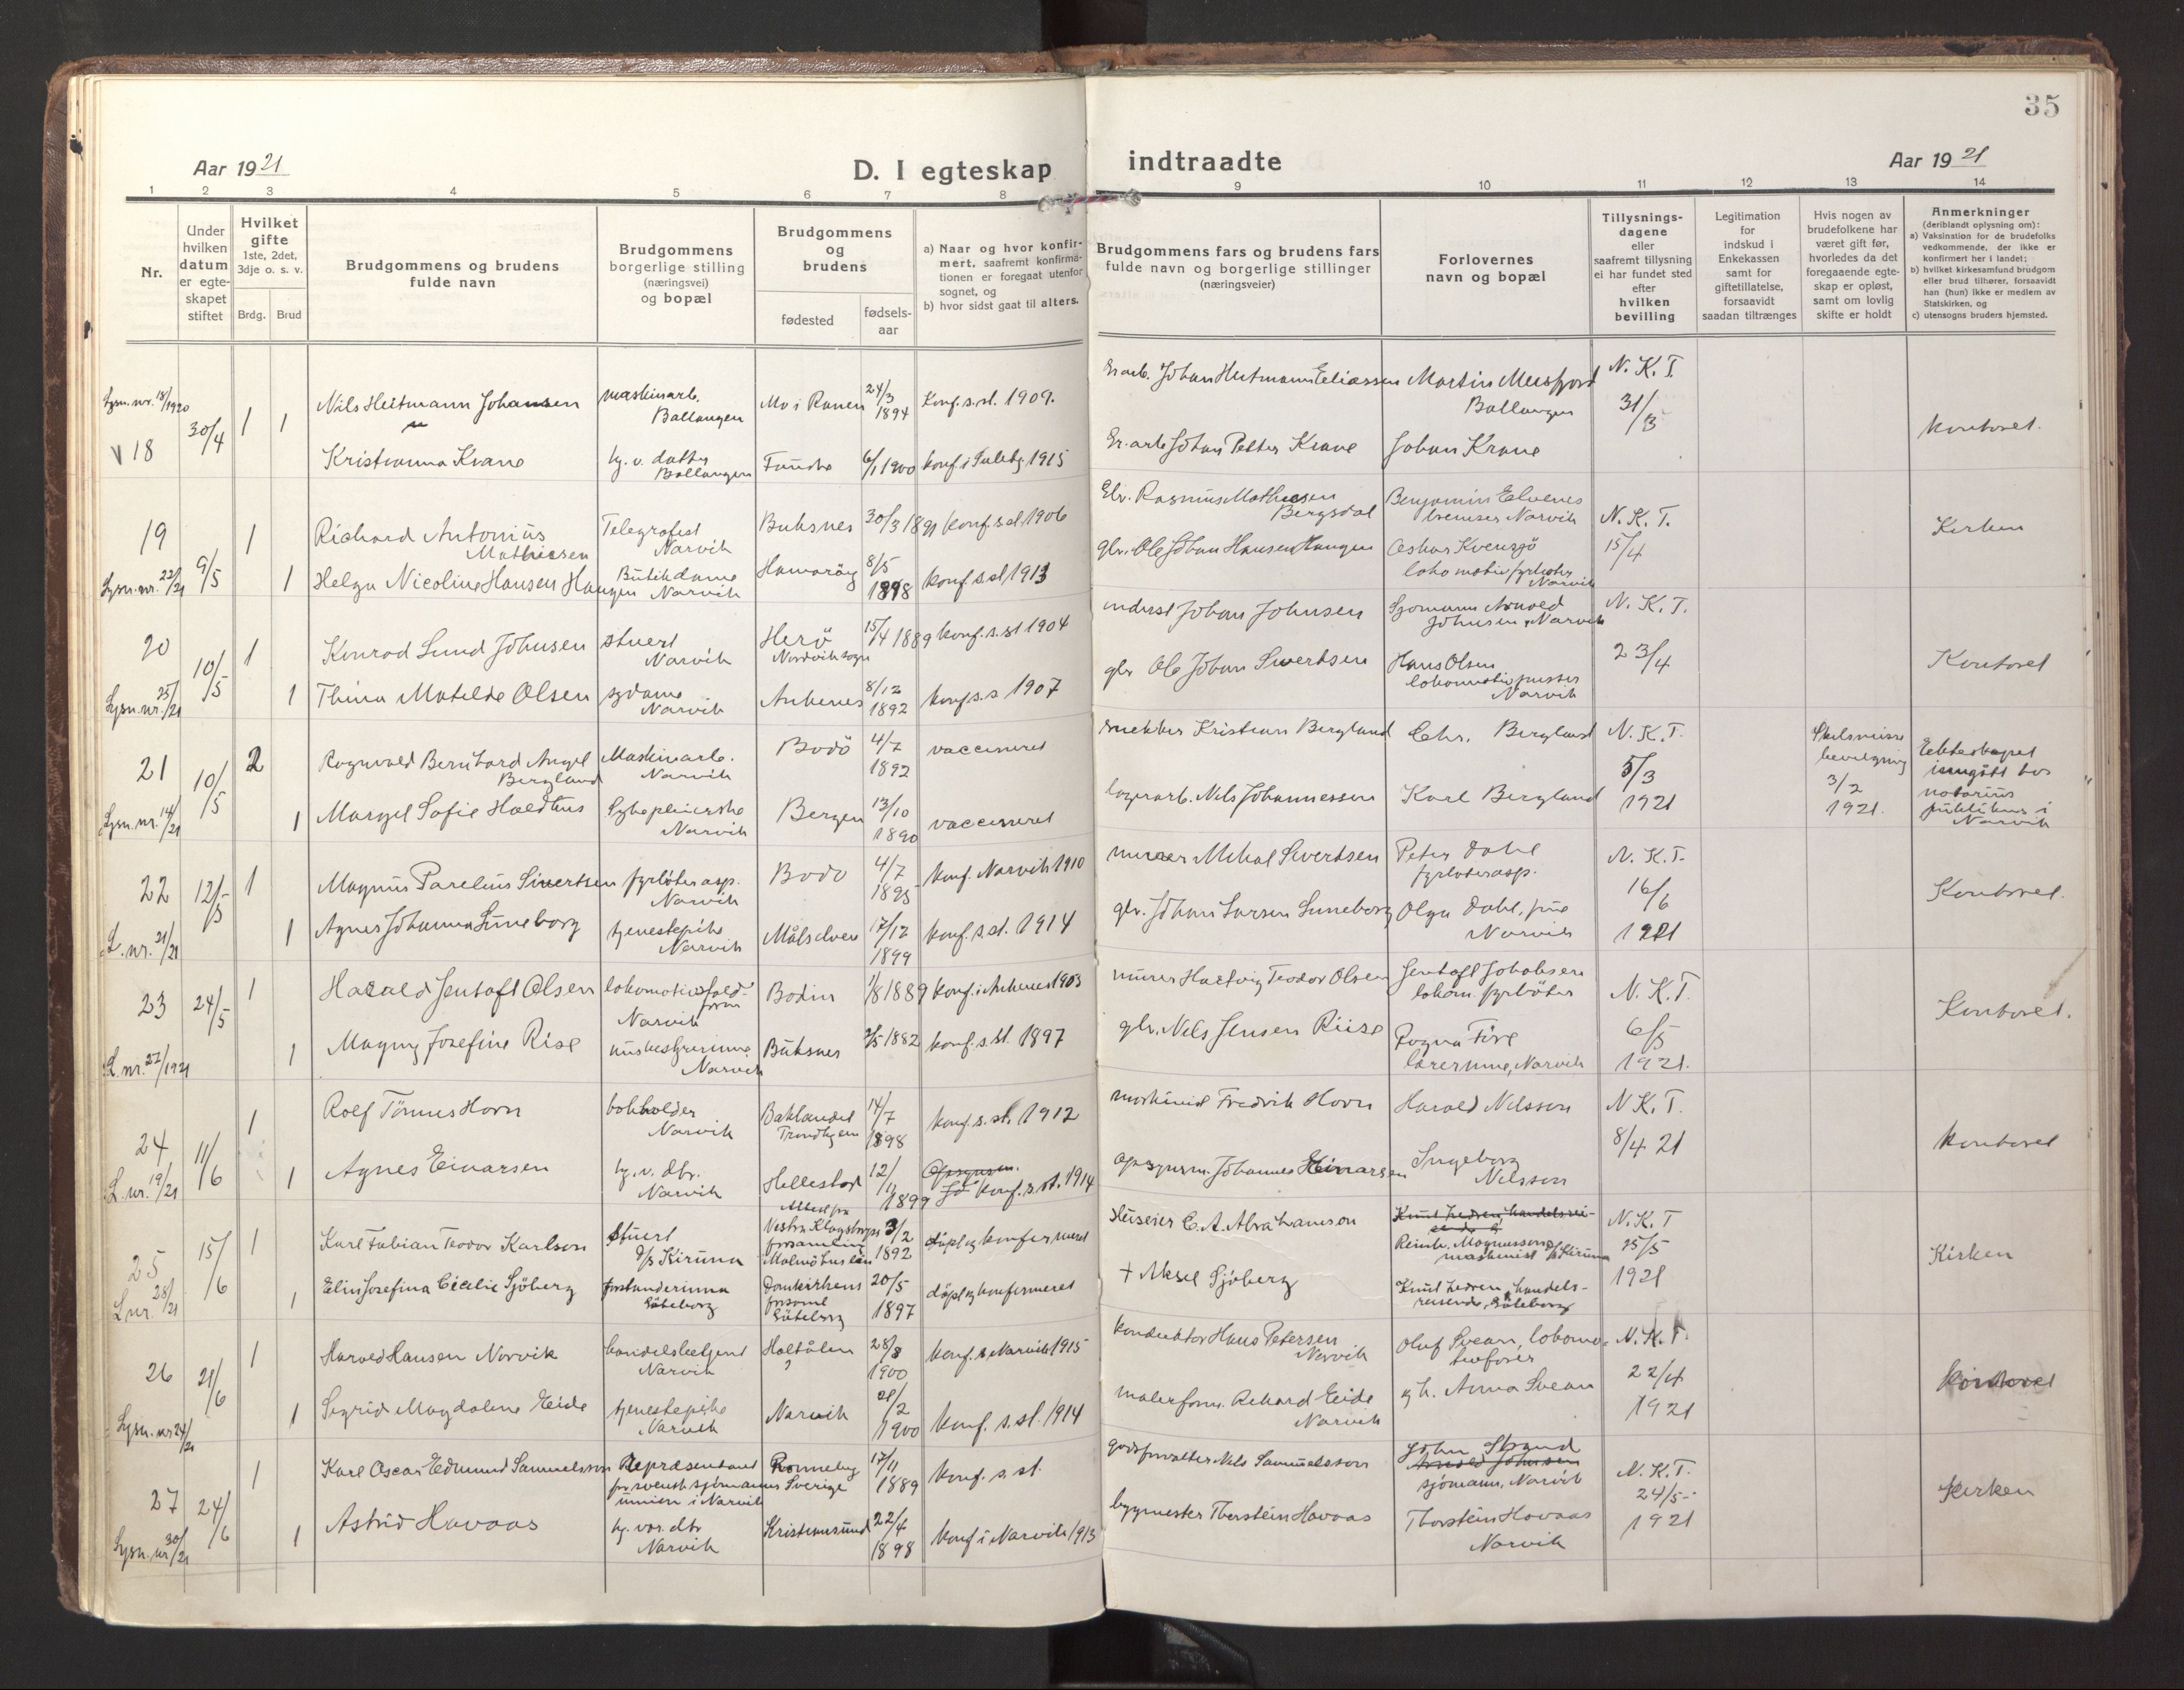 35
Aar 1921
D. I egteskap
indtraadte
Aar 1921
1 2 3 4 5 6 7 8 9 10 11 12 13 14
Nr.
Under
hvilken
datum
er egte-
skapet
stiftet
Hvilket
gifte
1ste, 2det,
3dje o. s. v.
Brdg. Brud
Brudgommens og brudens
fulde navn
Brudgommens
borgerlige stilling
(næringsvei)
og bopæl
Brudgommens
og
brudens
fødested
fødsels-
aar
a) Naar og hvor konfir-
mert, saafremt konfirma-
tionen er foregaat utenfor
sognet, og
b) hvor sidst gaat til alters.
Brudgommens fars og brudens fars
fulde navn og borgerlige stillinger
(næringsveier)
Forlovernes
navn og bopæl
Tillysnings-
dagene
eller
saafremt tillysning
ei har fundet sted
efter
hvilken
bevilling
Legitimation
for
indskud i
Enkekassen
samt for
giftetillatelse,
forsaavidt
saadan tiltrænges
Hvis nogen av
brudefolkene har
været gift før,
hvorledes da det
foregaaende egte-
skap er opløst,
samt om lovlig
skifte er holdt
Anmerkninger
(deriblandt oplysning om):
a) Vaksination for de brudefolks
vedkommende, der ikke er
konfirmert her i landet;
b) hvilket kirkesamfund brudgom
eller brud tilhører, forsaavidt
han (hun) ikke er medlem av
Statskirken, og
c) utensogns bruders hjemsted.
Lysn. nr. 18/1920
18
30/4
1 1
Nils Heitmann Johansen
maskinarb.
Ballangen
Mo i Ranen
24/3
1894
Konf. s. st. 1909.
Johan Heitmann Eliassen
Martin Meisfjord
Ballangen
N. K. T.
31/3
Kontoret.
Kristianna Krane
hj. v. datter
Ballangen
6/1 1900
konf. i 1915
Johan Petter Krane
Johan Krane
19
9/5
Lysn. nr. 22/21
1
Richard Antonius
Mathiesen
Telegrafist
Narvik
Buksnes
30/3 1891
konf. s. st. 1906
Rasmus Mathiesen
Bergsdal
Benjamin Elvenes
bremser Narvik
N. K. T.
15/4
Kirken
1
Helga Nicoline Hansen Haugen
Butikdame
Narvik
Hamarøy
8/5
1898
konf. s. st 1913
gbr. Ole Johan Hansen Haugen
Oskar Kvensjö
lokomotivfyrbøter
Narvik
20
10/5
Lysn. nr. 25/21
1
Konrad Lund Johnsen
stuert
Narvik
Herö
Nordvik sogn
15/4 1889
konf. s. st 1904
Johan Johnsen
Sjømann Arnold
Johnsen, Narvik
N. K. T.
23/4
Kontoret
1
Thina Matilde Olsen
sydame
Narvik
Ankenes
8/12
1892
konf. s. s 1907
gbr Ole Johan Sivertsen
Hans Olsen
lokomotivpusser
Narvik
21
10/5
Lysn. nr. 14/21
2
Ragnvald Bernhard Angel
Bergland
Maskinarb.
Narvik
Bodö
4/7
1892
vaccineret
snekker Kristian Bergland
Chr. Bergland
N. K. T.
5/3
1921
Skilsmisse
bevilgning
3/2
1921.
Ekteskapet
inngått hos
notarius
publikus i
Narvik
1
Margit Sofie Holdhus
Sykepleierske
Narvik
Bergen
13/10
1890
vaccineret
lagerarb. Nils Johannessen
Karl Bergland
22
12/5
L. nr. 21/21
1
Magnus Parelius Sivertsen
fyrbøterasp.
Narvik
Bodö
4/7
1895
konf. Narvik 1910
murer Mikal Sivertsen
Peter Dahl
fyrbøterasp.
N. K. T.
16/6
1921
Kontoret.
1
Agnes Johanna Luneborg
tjenestepike
Narvik
Målselven
17/12
1899
konf. s. st. 1914
gbr. Johan Larsen Luneborg
Olga Dahl, frue
Narvik
23
24/5
L. nr. 27/1921
1
Harald Jentoft Olsen
Narvik
Bodin
1/8 1889
konf. i Ankenes 1903
murer Hartvig Teodor Olsen
Jentoft Jakobsen
lokom. fyrbøter
N. K. T.
6/5
1921.
Kontoret.
1
Magny Josefine Rise
Narvik
Buksnes
2/5 1882
konf. s. st. 1897
gbr. Nils Jensen Riise
Ragna Five
lærerinne, Narvik
24
11/6
L. nr. 19/21
1
Rolf Tönnes Horn
bokholder
Narvik
Baklandet
Trondhjem
14/7
1898
konf. s. st. 1912
maskinist Fredrik Horn
Harald Nilsson
N K. T.
8/4 21
kontoret
1
Agnes Einarsen
hj. v. dtr.
Narvik
Hellestad
12/11
1899
konf. s. st. 1914
opsynsm. Johannes Einarsen
Ingeborg
Nilsson
25
15/6
L nr. 28/21
1
Karl Fabian Teodor Karlson
Stuert
D/s Kiruna
Attest fra
Vestra Klagstorps
forsamling
Malmöhus län
3/2
1892
döpt og konfirmeret
Huseier C. A. Abrahamson
Knut Hedren, handelsrei-
sende
Reinh. Magnusson
maskinist D/s Kiruna
N. K. T
25/5
1921
Kirken
1
Elin Josefina Cecilie Sjöberg
forstanderinna
Göteborg
Domkirkens
forsaml
Göteborg
20/5
1897
döpt og konfirmeret
+ Aksel Sjöberg
Knut Hedren, handels-
reisende, Göteborg
26
21/6
Lysn. nr 24/21
1
Harald Hansen Narvik
handelsbetjent
Narvik
Holtålen
?
28/8
1900
konf. i Narvik 1915
konduktør Hans Petersen
Narvik
Oluf Svean, lokomo-
tivfører
N. K. T.
22/4
1921
1
Sigrid Magdalene Eide
tjenestepike
Narvik
Narvik
28/2
1900
konf. s. st. 1914
malerform. Rikard Eide
Narvik
og h. Anna Svean
27
24/6
Lysn. nr 30/21
1
Karl Oscar Edmund Samuelsson
Repræsentant
for svensk sjømanns
union i Narvik
Ronneby
Sverige
17/11
1889
konf. s. st.
godsforvalter Nils Samuelsson
John Strand
Arnold Johnsen
sjømann, Narvik
N. K. T.
24/5
1921
Kirken
1
Astrid Havaas
hj. vær. dtr
Narvik
Kristiansund
22/4
1898
konf i Narvik 1913
bygmester Thorstein Havaas
Thorstein Havaas
Narvik